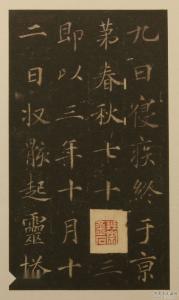 九日寝疾終于京
第春秋七十三
即以三年十月十
二日収骸起靈塔